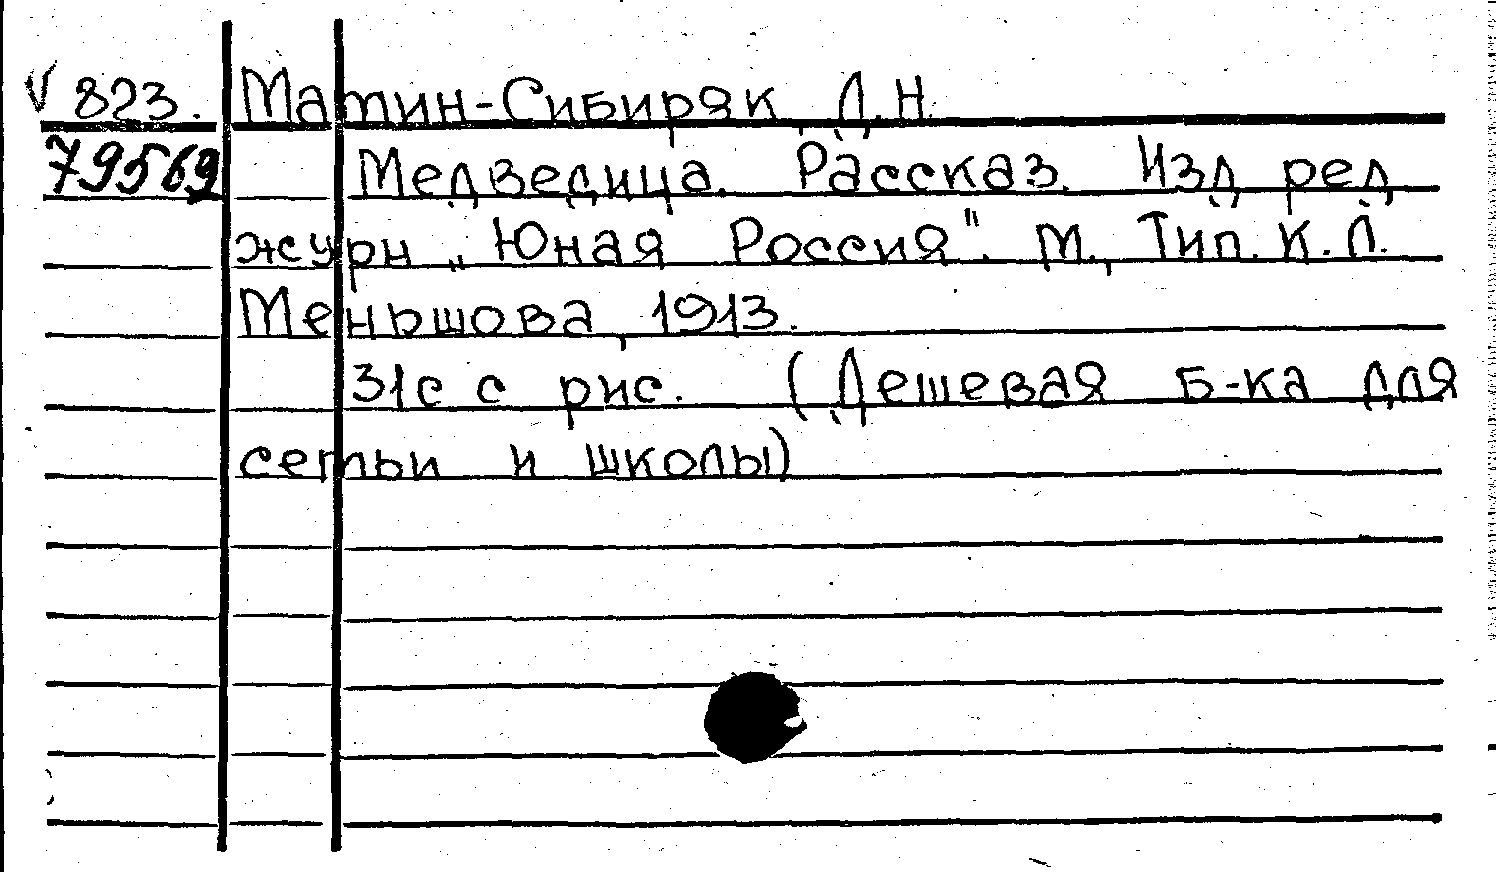 V 823. Мамин-Сибиряк Д.Н.
79569 Медведица. Рассказ. Изд ред
журн „Юная Россия". М., Тип. К. Л.
Меньшова, 1913.
31с с рис. (Дешевая Б-ка для
семьи и школы)